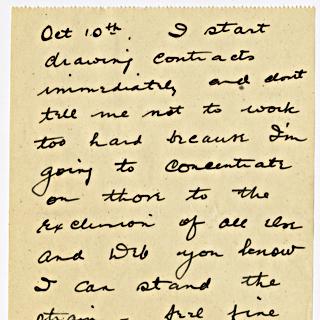 Oct 10th. I start
drawing contracts
immediately and dont
tell me not to work
too hard because I'm
going to concentrate
on those to the
exclusion of all else
and Deb you know
I can stand the
strain - feel fine